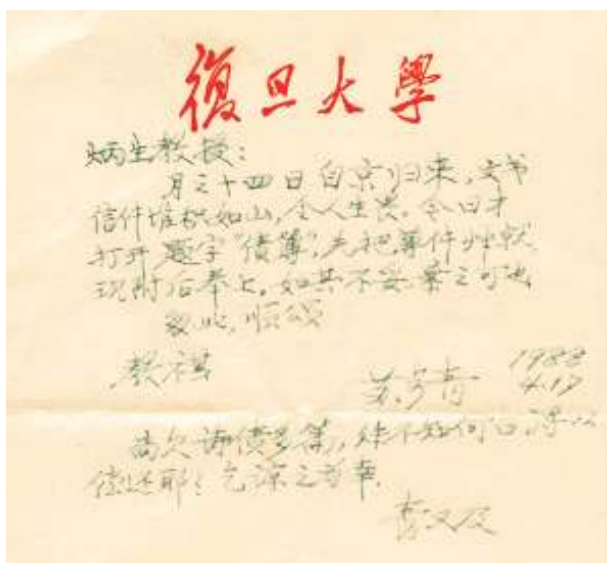 復旦大學
炳生教授：
月之十四日自京归来，文书
信件堆积如山，令人生畏。今日才
打开题字“债簿”，先把尊件
现附后奉上。如其不妥，弃之可也
匆此，顺颂
教祺
苏步青 1988
4.17
尚欠诗债多篇，不知何日得以
偿还耶！乞谅之为幸。
青又及